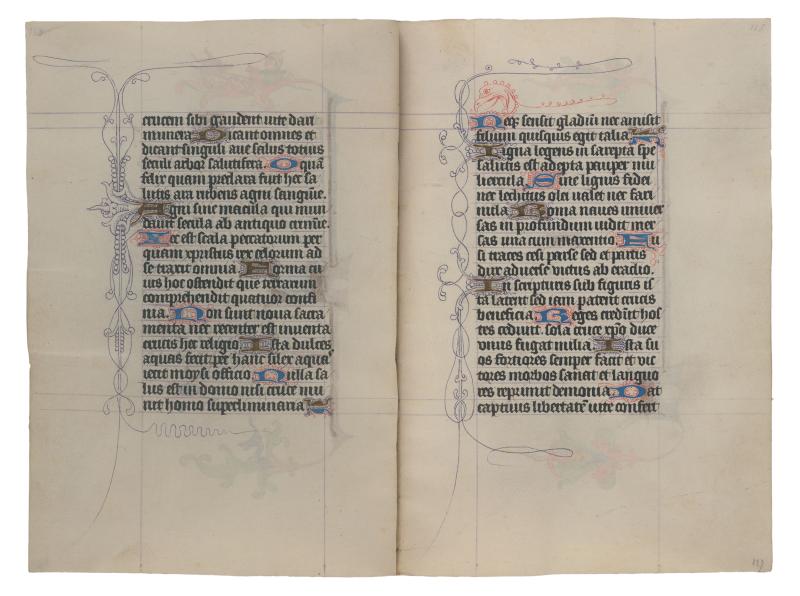 crucem sibi gaudent uite dari
munera Dicant omnes et
dicant singuli aue salus totius
seculi arbor salutifera. O quā
felix quam preclara fuit hec sa
lutis ara rubens agni sanguīe.
Agni sine macula qui mun
dauit secula ab antiquo crimīe.
Hec est scala peccatorum per
quam xpristus rex celorum ad
se traxit omnia Forma cu
ius hoc ostendit que terrarum
comprehendit quatuor confi
nia. Non sunt noua sacra
menta nec recenter est inuenta
crucis hec religio Ista dulces
aquas fecit per hanc silex aquas
iecit moysi officio Nulla sa
lus est in domo nisi cruce mu
nit homo superliminaria
Neq; sensit gladiū nec amisit
filium quisquis egit talia
Ligna legens in sarepta spe
salutis est adepta pauper mu
liercula Sine lignis fidei
nec lechitus olei ualet nec fari
nula Roma naues uniuer
sas in profundum uidit mer
sas una cum maxentio Fu
si traces cesi perse sed et partis
dux aduerse uictus ab eraclio.
In scripturis sub figuris is
ta latent sed iam patent crucis
beneficia Reges credūt hos
tes cedunt. sola cruce xp̄o duce
vnus fugat milia Ista su
os fortiores semper facit et vic
tores morbos sanat et languo
res reprimit demonia Dat
captiuis libertatē uite confert
117